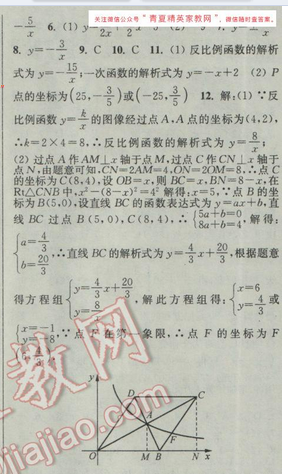 关注微信公众号
"青夏精英家教网"
，微信随时查答案。
8. y=-3/x 9. C 10. C 11. (1) 反比例函数的解析
式为 y=-15/x;一次函数的解析式为 y=-x+2 (2) P
点的坐标为(25,-3/5)或(-25,3/5) 12. 解:(1)∵反
比例函数 y=k/x 的图像经过点 A,A 点的坐标为(4,2),
∴k=2×4=8,∴反比例函数的解析式为 y=8/x;
(2) 过点 A 作 AM⊥x 轴于点 M,过点 C 作 CN⊥x 轴于
点 N,由题意可知,CN=2AM=4,ON=2OM=8,∴点 C
的坐标为 C(8,4),设 OB=x,则 BC=x,BN=8-x,在
Rt△CNB中,x²-(8-x)²=4² 解得:x=5,∵点 B 的坐
标为 B(5,0),设直线 BC 的函数表达式为 y=ax+b,直
线 BC 过点 B (5, 0), C (8, 4), ∴ {5a+b=0 8a+b=4, 解得:
{a=4/3 b=-20/3 ∴直线 BC 的解析式为 y=4/3x+20/3,根据题意
得方程组 {y=4/3x+20/3 y=8/x, 解此方程组得: {x=6 y=4/3 或
{x=-1 y=-8,∵点 F 在第一象限,∴点 F 的坐标为 F
y
D
C
A
F
O
M
B
N
x